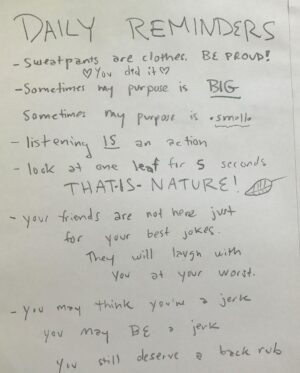 DAILY REMINDERS
- Sweatpants are clothes. BE PROUD!
♡ You did it ♡
- Sometimes my purpose is BIG
Sometimes my purpose is •small•
- listening IS an action
- look at one leaf for 5 seconds
THAT-IS-NATURE!
- your friends are not here just
for your best jokes.
They will laugh with
you at your worst.
- you may think you're a jerk
you may BE a jerk
You still deserve a back rub